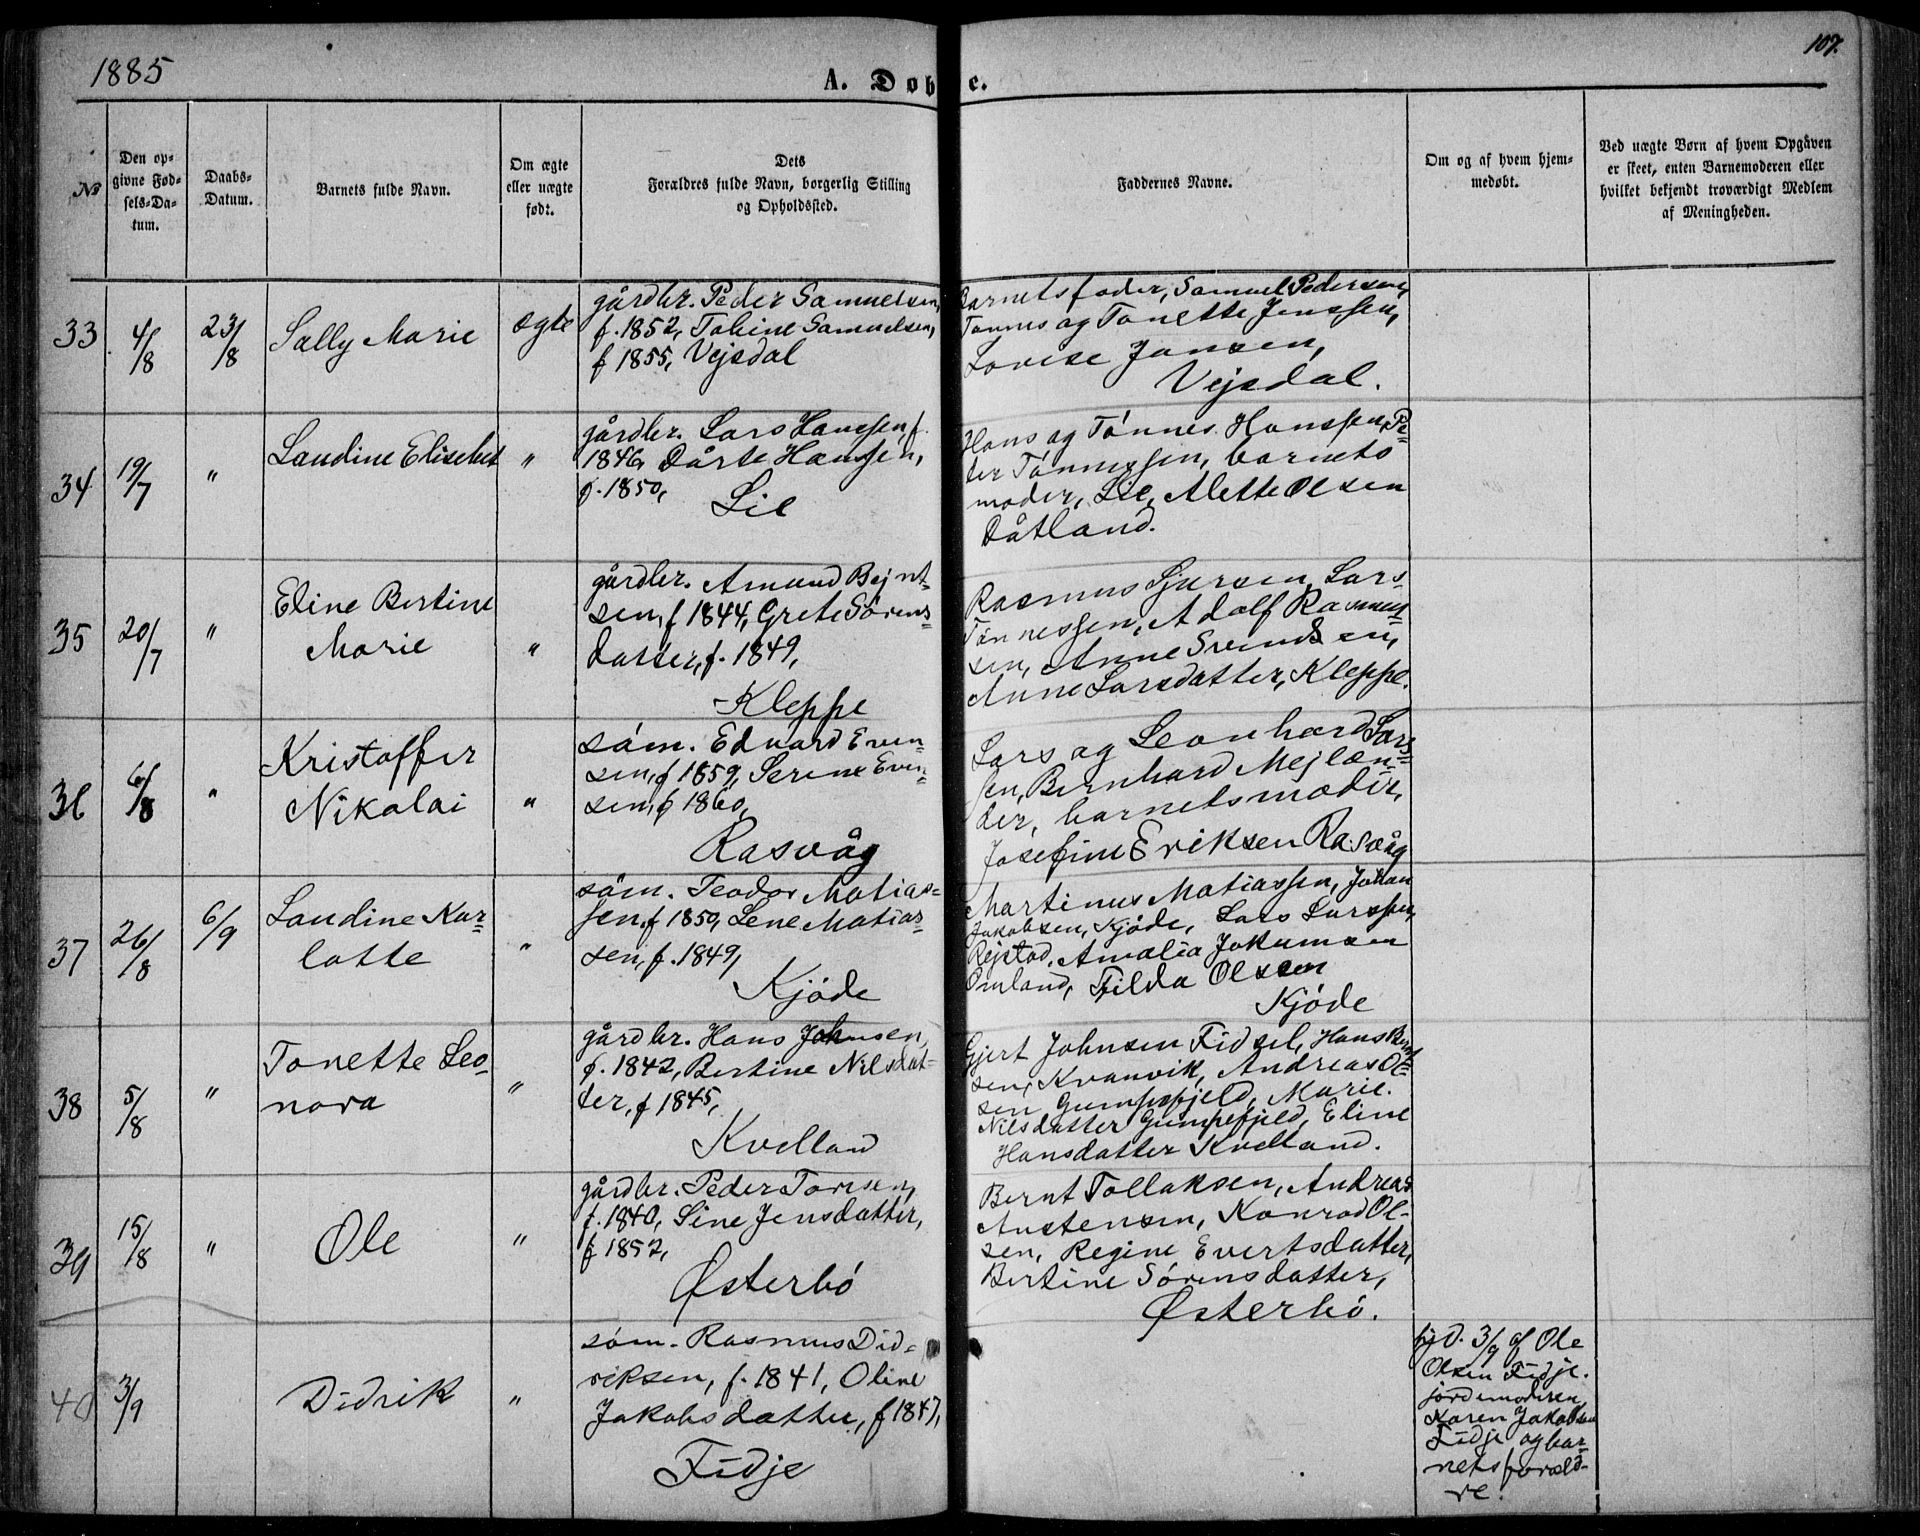 1885
A. Døbte.
107.
№
Den op-
givne Fød-
sels-Da-
tum.
Daabs-
Datum.
Barnets fulde Navn.
Om ægte
eller uægte
født.
Dets
Forældres fulde Navn, borgerlig Stilling
og Opholdssted.
Faddernes Navne.
Om og af hvem hjem-
medøbt.
Ved uægte Børn af hvem Opgaven
er skeet, enten Barnemoderen eller
hvilket bekjendt troværdigt Medlem
af Menigheden.
33
4/8
23/8
Sally Marie
ægte
gårdbr. Peder Samuelsen,
f. 1852, Tobine Samuelsen,
f 1855, Vejsdal
Barnets fader, Samuel Pedersen,
Tønnes og Tonette Jenssen,
Lovise Jansen,
Vejsdal.
34
19/7
"
Laudine Elisebet
"
gårdbr. Lars Hanssen, f.
1846, Dårte Hanssen,
f. 1850,
Lie
Hans og Tønnes Hanssen, Pe-
der Tønnessen, barnets
moder, Lie, Alette Olsen
Dåtland.
35
20/7
"
Eline Bertine
Marie
"
gårdbr. Amund Bejnt-
sen, f 1844, Grete Sørens-
datter, f. 1849,
Kleppe
Rasmus Sjursen, Lars
Tønnessen, Adolf Rasmus-
sen, Anne Svendsen,
Anne Larsdatter, Kleppe.
36
6/8
"
Kristoffer
Nikolai
"
søm. Edvard Even-
sen, f 1859, Serine Even-
sen, f 1860,
Rasvåg
Lars og Leonhard Lars-
sen, Bernhard Mejlæn-
der, barnets moder,
Josefine Eriksen Rasvåg
37
26/8
6/9
Laudine Kar-
lotte
"
søm. Teodor Matias-
sen, f 1850, Lene Matias-
sen, f. 1849,
Kjøde
Martinus Matiassen, Johan
Jakobsen, Kjøde, Lars Larssen,
Rejstad, Amalia Jokumsen
Omland, Tilda Olssen
Kjøde
38
5/8
"
Tonette Leo-
nora
"
gårdbr. Hans Johnsen,
f. 1842, Bertine Nilsdat-
ter, f 1845,
Kvelland
Gjert Johnsen Fidsel, Hans Bernt-
sen, Kvanvik, Andreas Ol-
sen Gumpefjeld, Marie
Nilsdatter Gumpefjeld, Eline
Hansdatter Kvelland.
39
15/8
"
Ole
"
gårdbr. Peder Toresen,
f. 1840, Sine Jensdatter,
f 1852,
Østerbø
Bernt Tollaksen, Andreas
Austensen, Konrad Ol-
sen, Regine Evertsdatter,
Bertine Sørensdatter,
Østerbø.
40
3/9
Didrik
"
søm. Rasmus Did-
riksen, f. 1841, Oline
Jakobsdatter, f 1847,
Fidje
hjd. 3/9 af Ole
Olsen Fidje.
jordemoderen
Karen Jakobsen
Fidje og bar-
nets foræld-
re.